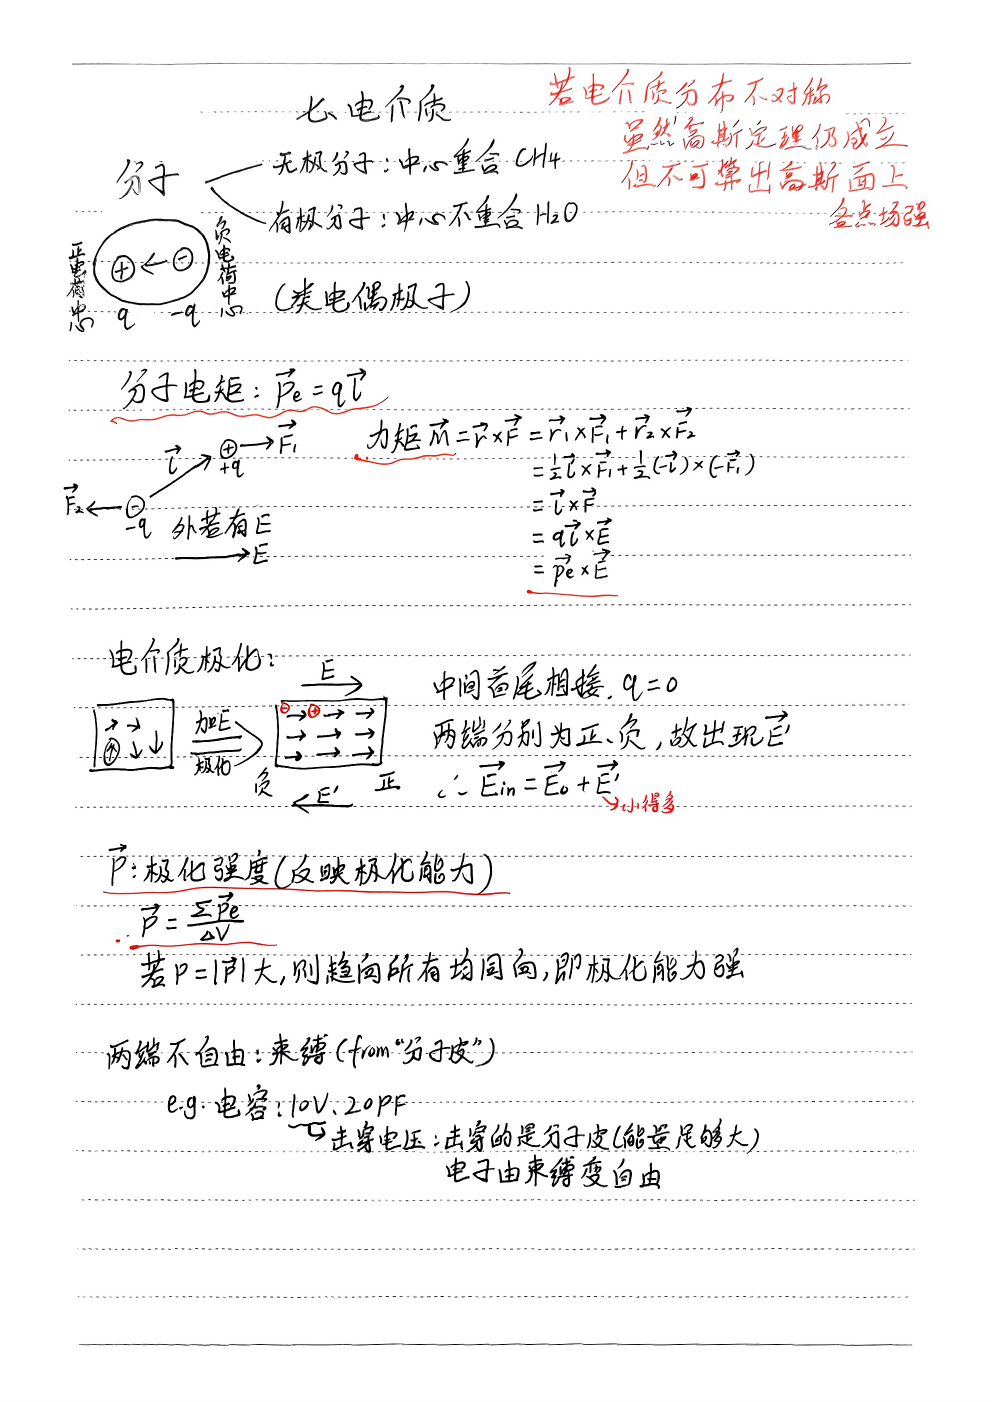 七、电介质
若电介质分布不对称
虽然高斯定理仍成立
但不可算出高斯面上
各点场强
分子
无极分子：中心重合 CH₄
有极分子：中心不重合 H₂O
正电荷中心
⊕ ← ⊖
q -q
负电荷中心
(类电偶极子)
分子电矩：p⃗e = q l⃗
l⃗ ⊕ +q F⃗₁
F⃗₂ ⊖ -q
外若有E
E
力矩 M⃗ = r⃗×F⃗ = r⃗₁×F⃗₁ + r⃗₂×F⃗₂
= ½ l⃗×F⃗₁ + ½(-l⃗)×(-F⃗₁)
= l⃗×F⃗
= q l⃗×E⃗
= p⃗e×E⃗
电介质极化：
加E
极化
E
⊖ ⊕
负 正
E'
中间首尾相接，q=0
两端分别为正、负，故出现E⃗'
∴ E⃗in = E⃗₀ + E⃗'
小得多
P⃗：极化强度(反映极化能力)
P⃗ = Σp⃗e / ΔV
若P=|P⃗|大，则趋向所有均同向，即极化能力强
两端不自由：束缚(from“分子皮”)
e.g. 电容：10V、20PF
击穿电压：击穿的是分子皮(能量足够大)
电子由束缚变自由